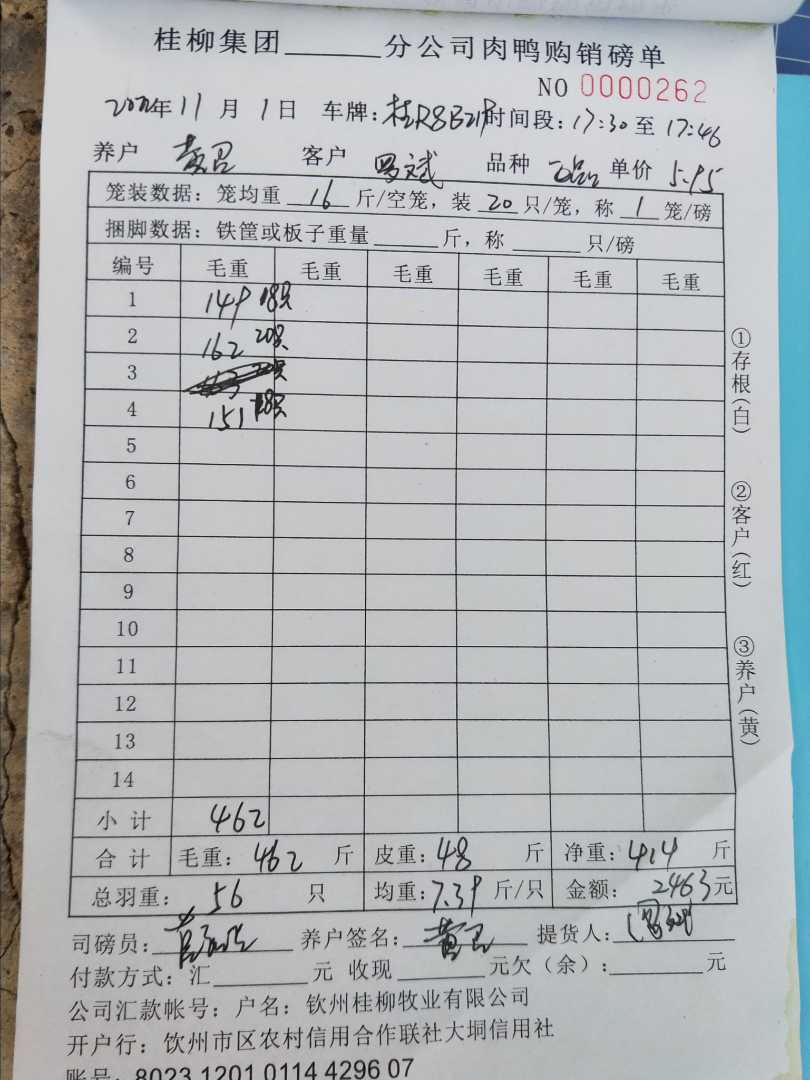 桂柳集团______分公司肉鸭购销磅单
NO 0000262
年11月1日 车牌: 时间段:17:30至17:46
养户 黄 客户 罗文斌 品种 单价 5.95
笼装数据:笼均重 16 斤/空笼,装 20 只/笼,称 1 笼/磅
捆脚数据:铁筐或板子重量______斤,称______只/磅
编号 毛重 毛重 毛重 毛重 毛重 毛重
1 149 18只
2 162 20只
3
4 151 18只
5
6
7
8
9
10
11
12
13
14
小计 462
合计 毛重:462 斤 皮重:48 斤 净重:414 斤
总羽重:56 只 均重:7.39 斤/只 金额:2463元
司磅员: 养户签名:黄 提货人:
付款方式:汇______元 收现______元欠(余):______元
公司汇款帐号:户名:钦州桂柳牧业有限公司
开户行:饮州市区农村信用合作联社大垌信用社
账号:8023 1201 0114 4296 07
①存根(白)
②客户(红)
③养户(黄)